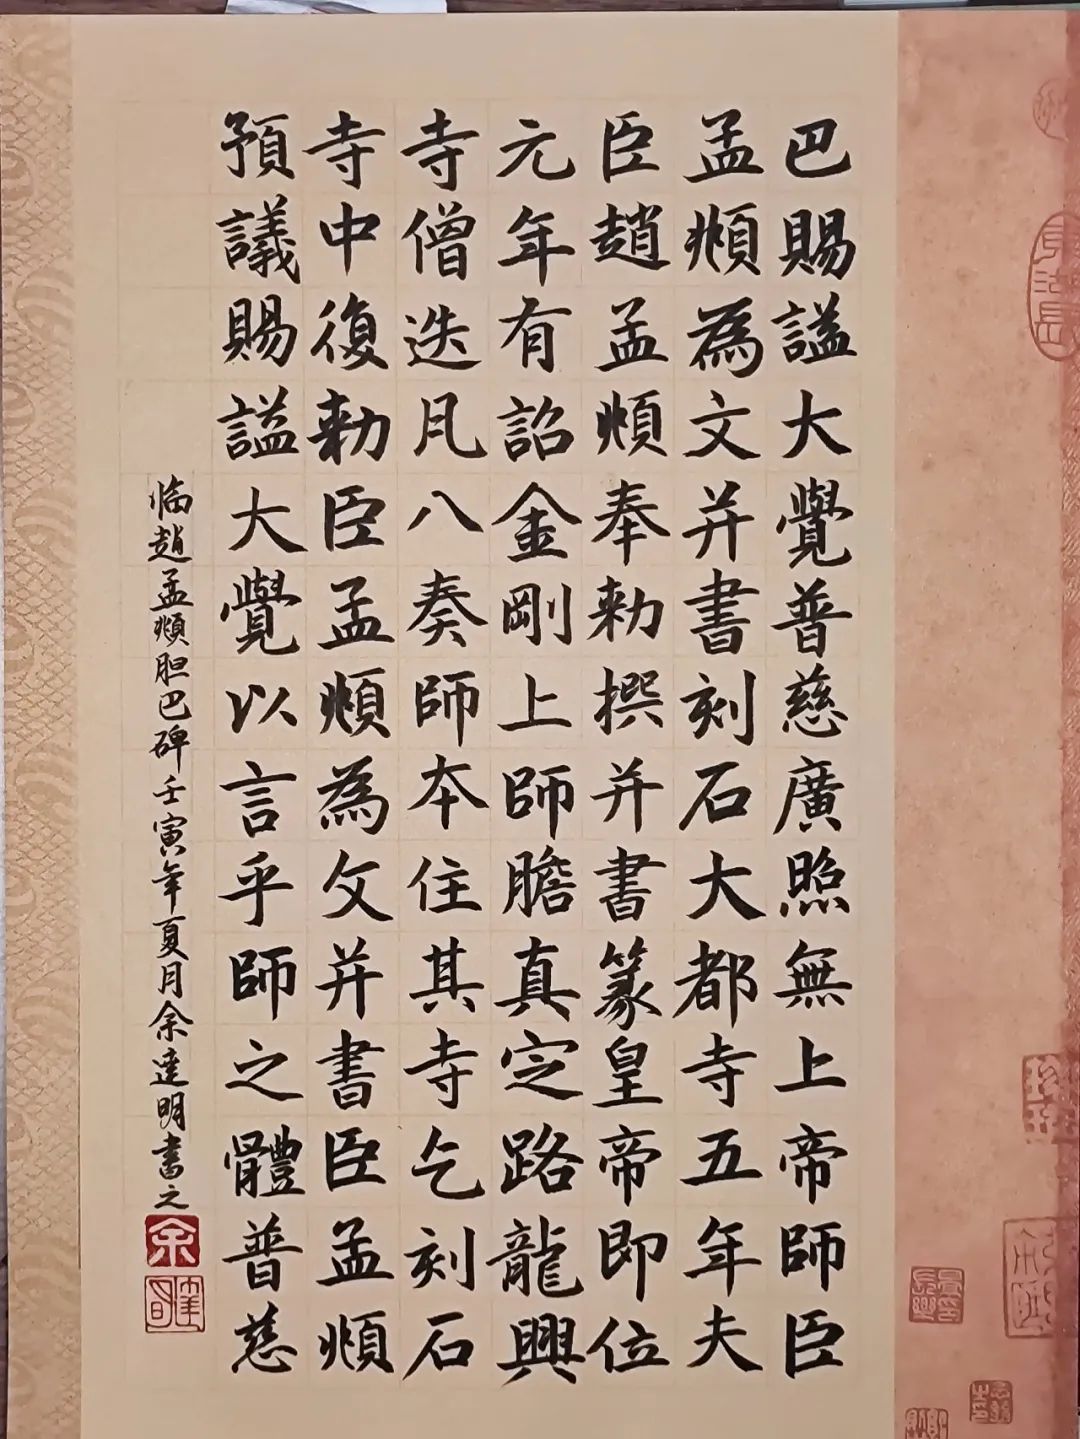 巴賜謚大覺普慈廣照無上帝師臣
孟頫為文并書刻石大都寺五年夫
臣趙孟頫奉勅撰并書篆皇帝即位
元年有詔金剛上師膽真定路龍興
寺僧迭凡八奏師本住其寺乞刻石
寺中復勅臣孟頫為文并書臣孟頫
預議賜謚大覺以言乎師之體普慈
临趙孟頫胆巴碑壬寅年夏月余達明書之
余